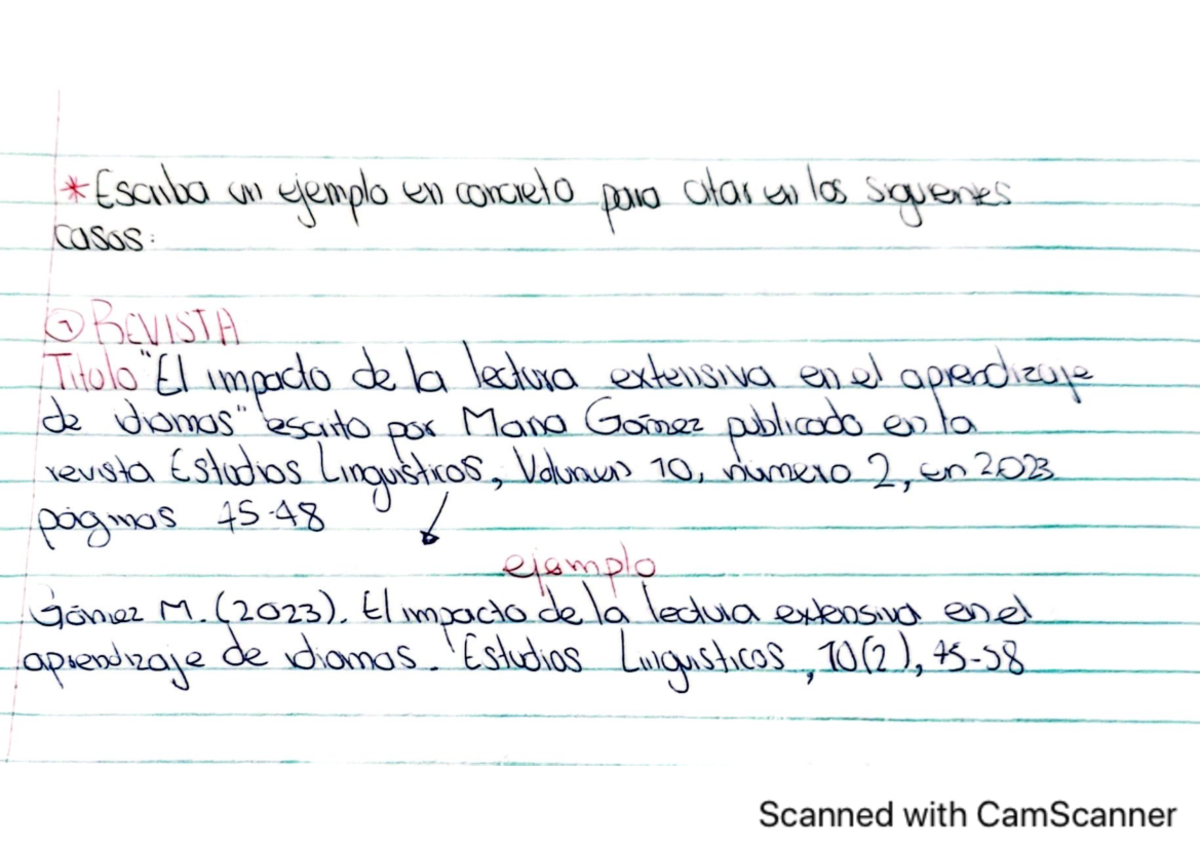 *Escriba un ejemplo en concreto para citar en los siguientes
casos:
① REVISTA
Titulo "El impacto de la lectura extensiva en el aprendizaje
de idiomas" escrito por Maria Gómez publicado en la
revista Estudios Linguisticos, Volumen 10, número 2, en 2023
páginas 45-48
ejemplo
Gómez M. (2023). El impacto de la lectura extensiva en el
aprendizaje de idiomas. Estudios Linguisticos, 10(2), 45-58
Scanned with CamScanner